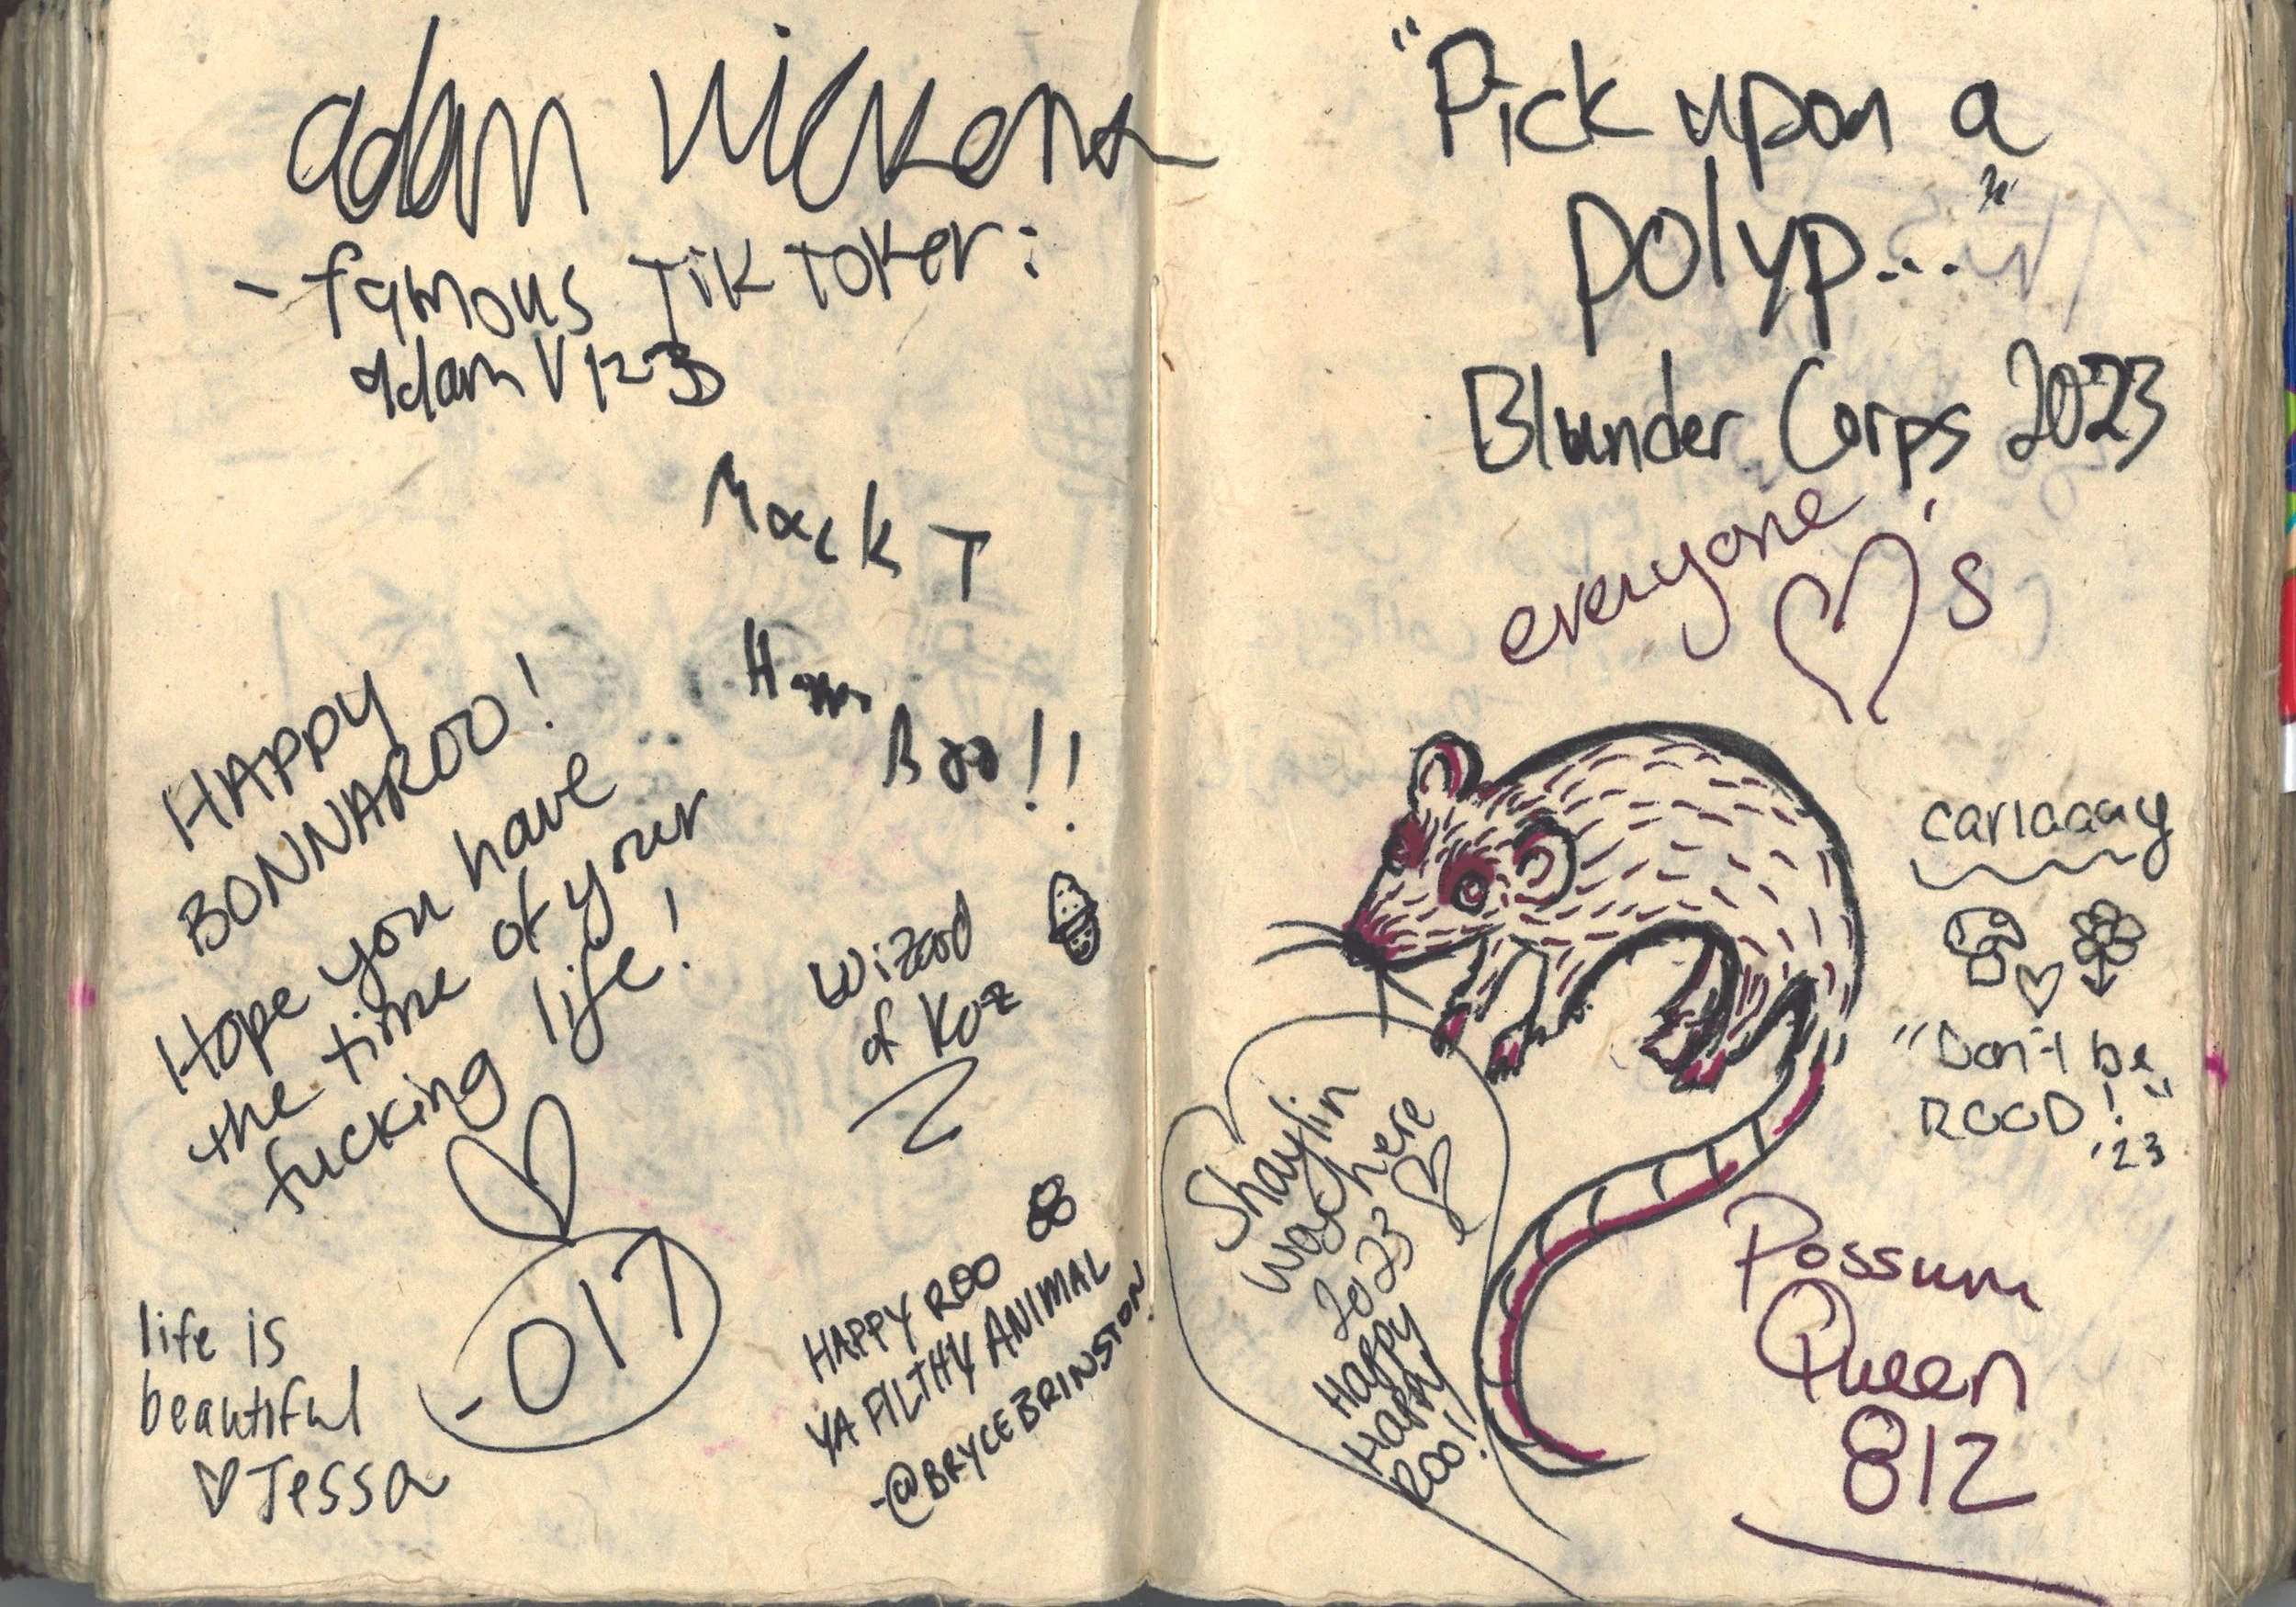 adam Vickena
- famous TikToker:
adam V 123
Mack T
HAPPY
BONNAROO!
Hope you have
the time of your
fucking life!
- 017
Boo!!
Wizard
of Koz
life is
beautiful
Tessa
HAPPY ROO
YA FILTHY ANIMAL
-@BRYCEBRINSTON
"Pick upon a
polyp..."
Blunder Corps 2023
everyone
♡'s
carlaaay
"Don't be
ROOD!"
'23
Shaylin
was here
2023
Happy
Happy
Roo!
Possum
Queen
812